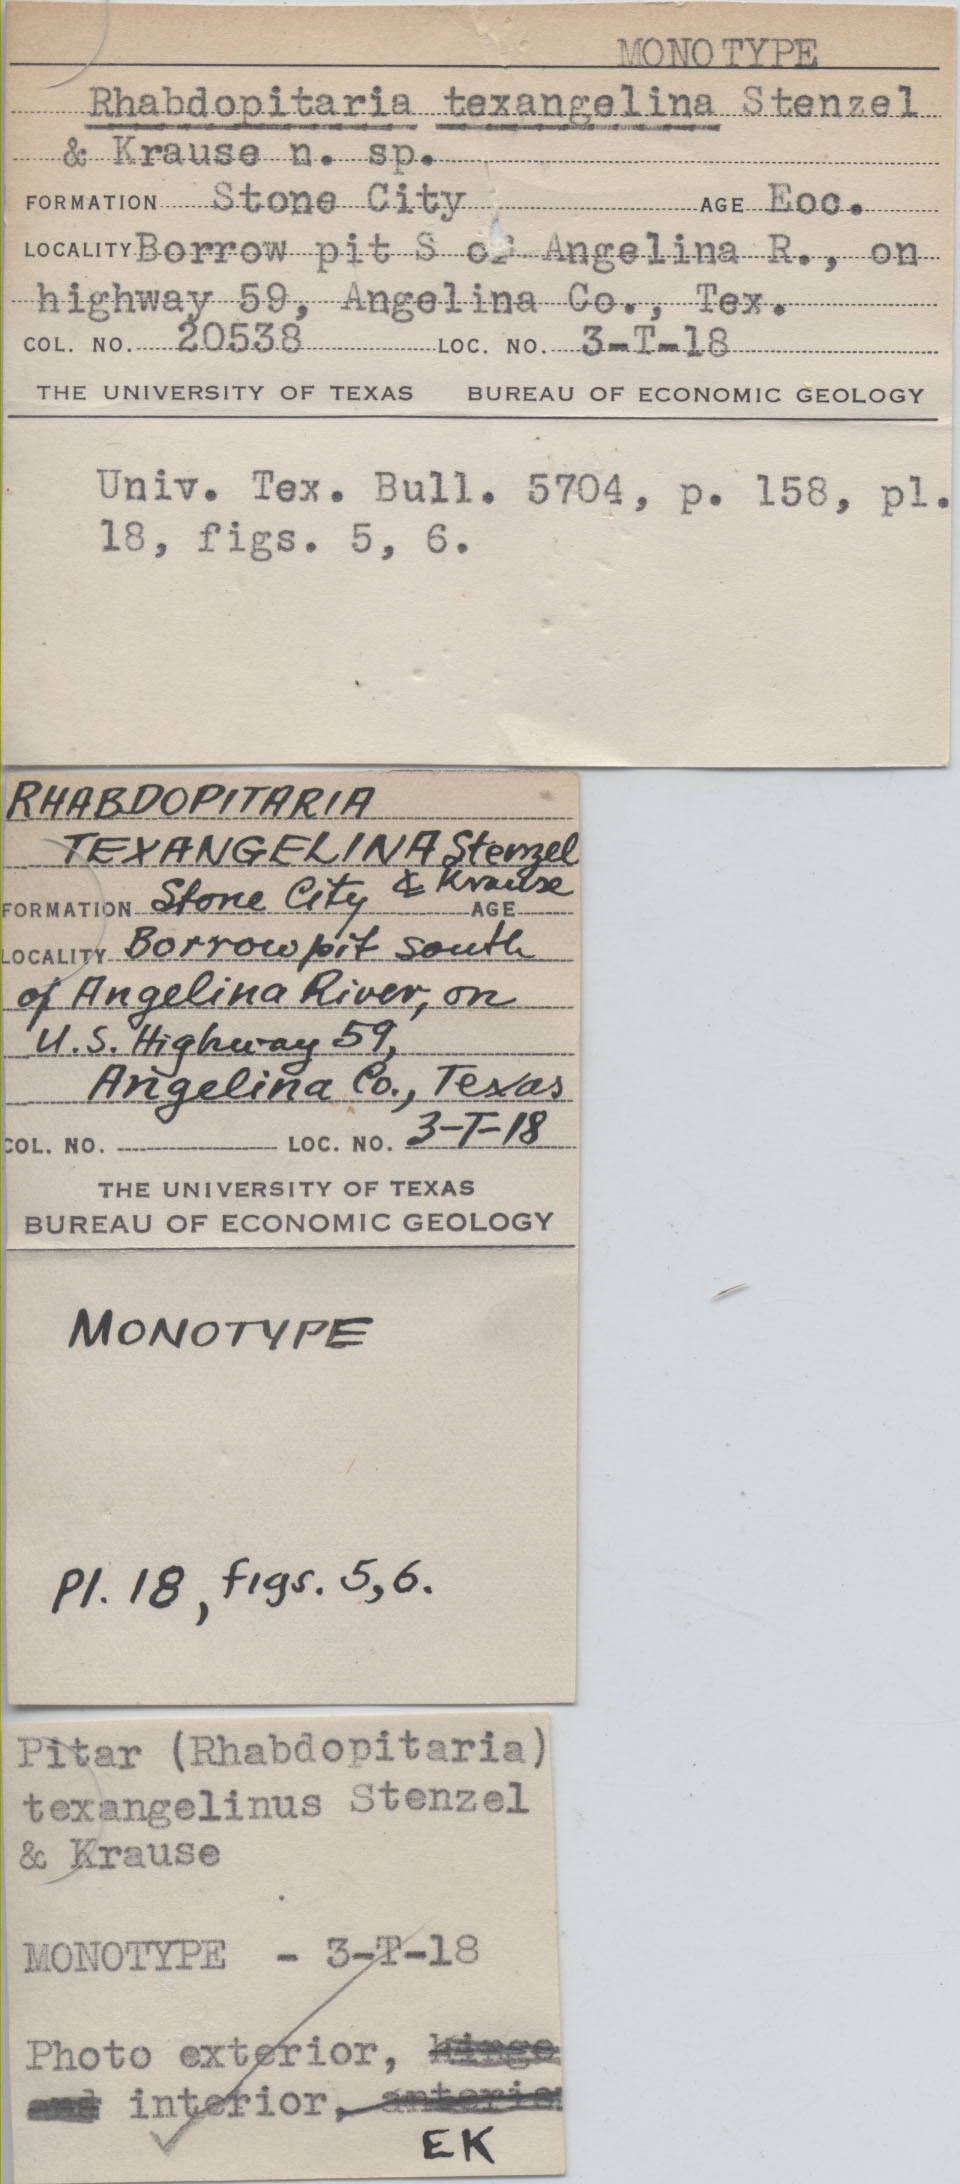 MONOTYPE
Rhabdopitaria texangelina Stenzel
& Krause n. sp.
FORMATION Stone City AGE Eoc.
LOCALITY Borrow pit S of Angelina R., on
highway 59, Angelina Co., Tex.
COL. NO. 20538 LOC. NO. 3-T-18
THE UNIVERSITY OF TEXAS BUREAU OF ECONOMIC GEOLOGY
Univ. Tex. Bull. 5704, p. 158, pl.
18, figs. 5, 6.
RHABDOPITARIA
TEXANGELINA Stenzel
& Krause
FORMATION Stone City AGE
LOCALITY Borrow pit south
of Angelina River, on
U.S. Highway 59,
Angelina Co., Texas
COL. NO. LOC. NO. 3-T-18
THE UNIVERSITY OF TEXAS
BUREAU OF ECONOMIC GEOLOGY
MONOTYPE
Pl. 18, figs. 5, 6.
Pitar (Rhabdopitaria)
texangelinus Stenzel
& Krause
MONOTYPE - 3-T-18
Photo exterior, hinge
and interior,
EK